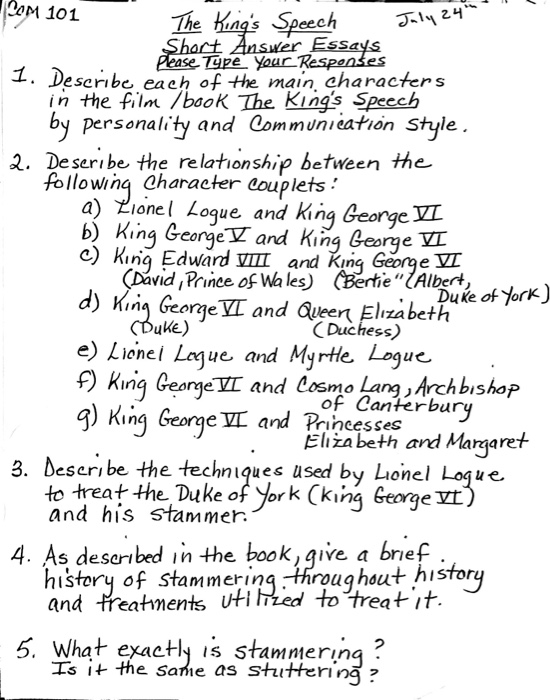 COM 101
The King's Speech
July 24th
Short Answer Essays
Please Type Your Responses
1. Describe each of the main characters
in the film/book The King's Speech
by personality and Communication style.
2. Describe the relationship between the
following Character Couplets:
a) Lionel Logue and King George VI
b) King George V and King George VI
c) King Edward VIII and King George VI
(David, Prince of Wales) (Bertie" (Albert,
Duke of York)
d) King George VI and Queen Elizabeth
(Duke) (Duchess)
e) Lionel Logue and Myrtle Logue
f) King George VI and Cosmo Lang, Archbishop
of Canterbury
g) King George VI and Princesses
Elizabeth and Margaret
3. Describe the techniques used by Lionel Logue
to treat the Duke of York (King George VI)
and his stammer.
4. As described in the book, give a brief
history of stammering throughout history
and treatments utilized to treat it.
5. What exactly is stammering?
Is it the same as stuttering?